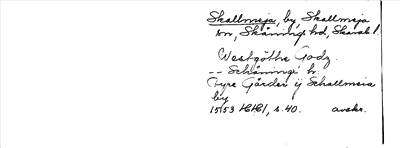 Skallmeja, by, Skallmeja
sn, Skånings hd, Skarab. l.
Westgötha Godz.
-- Schånings h:
Fyre Gårder ij Schallmeia
by
1553 HH1, s. 40. avskr.